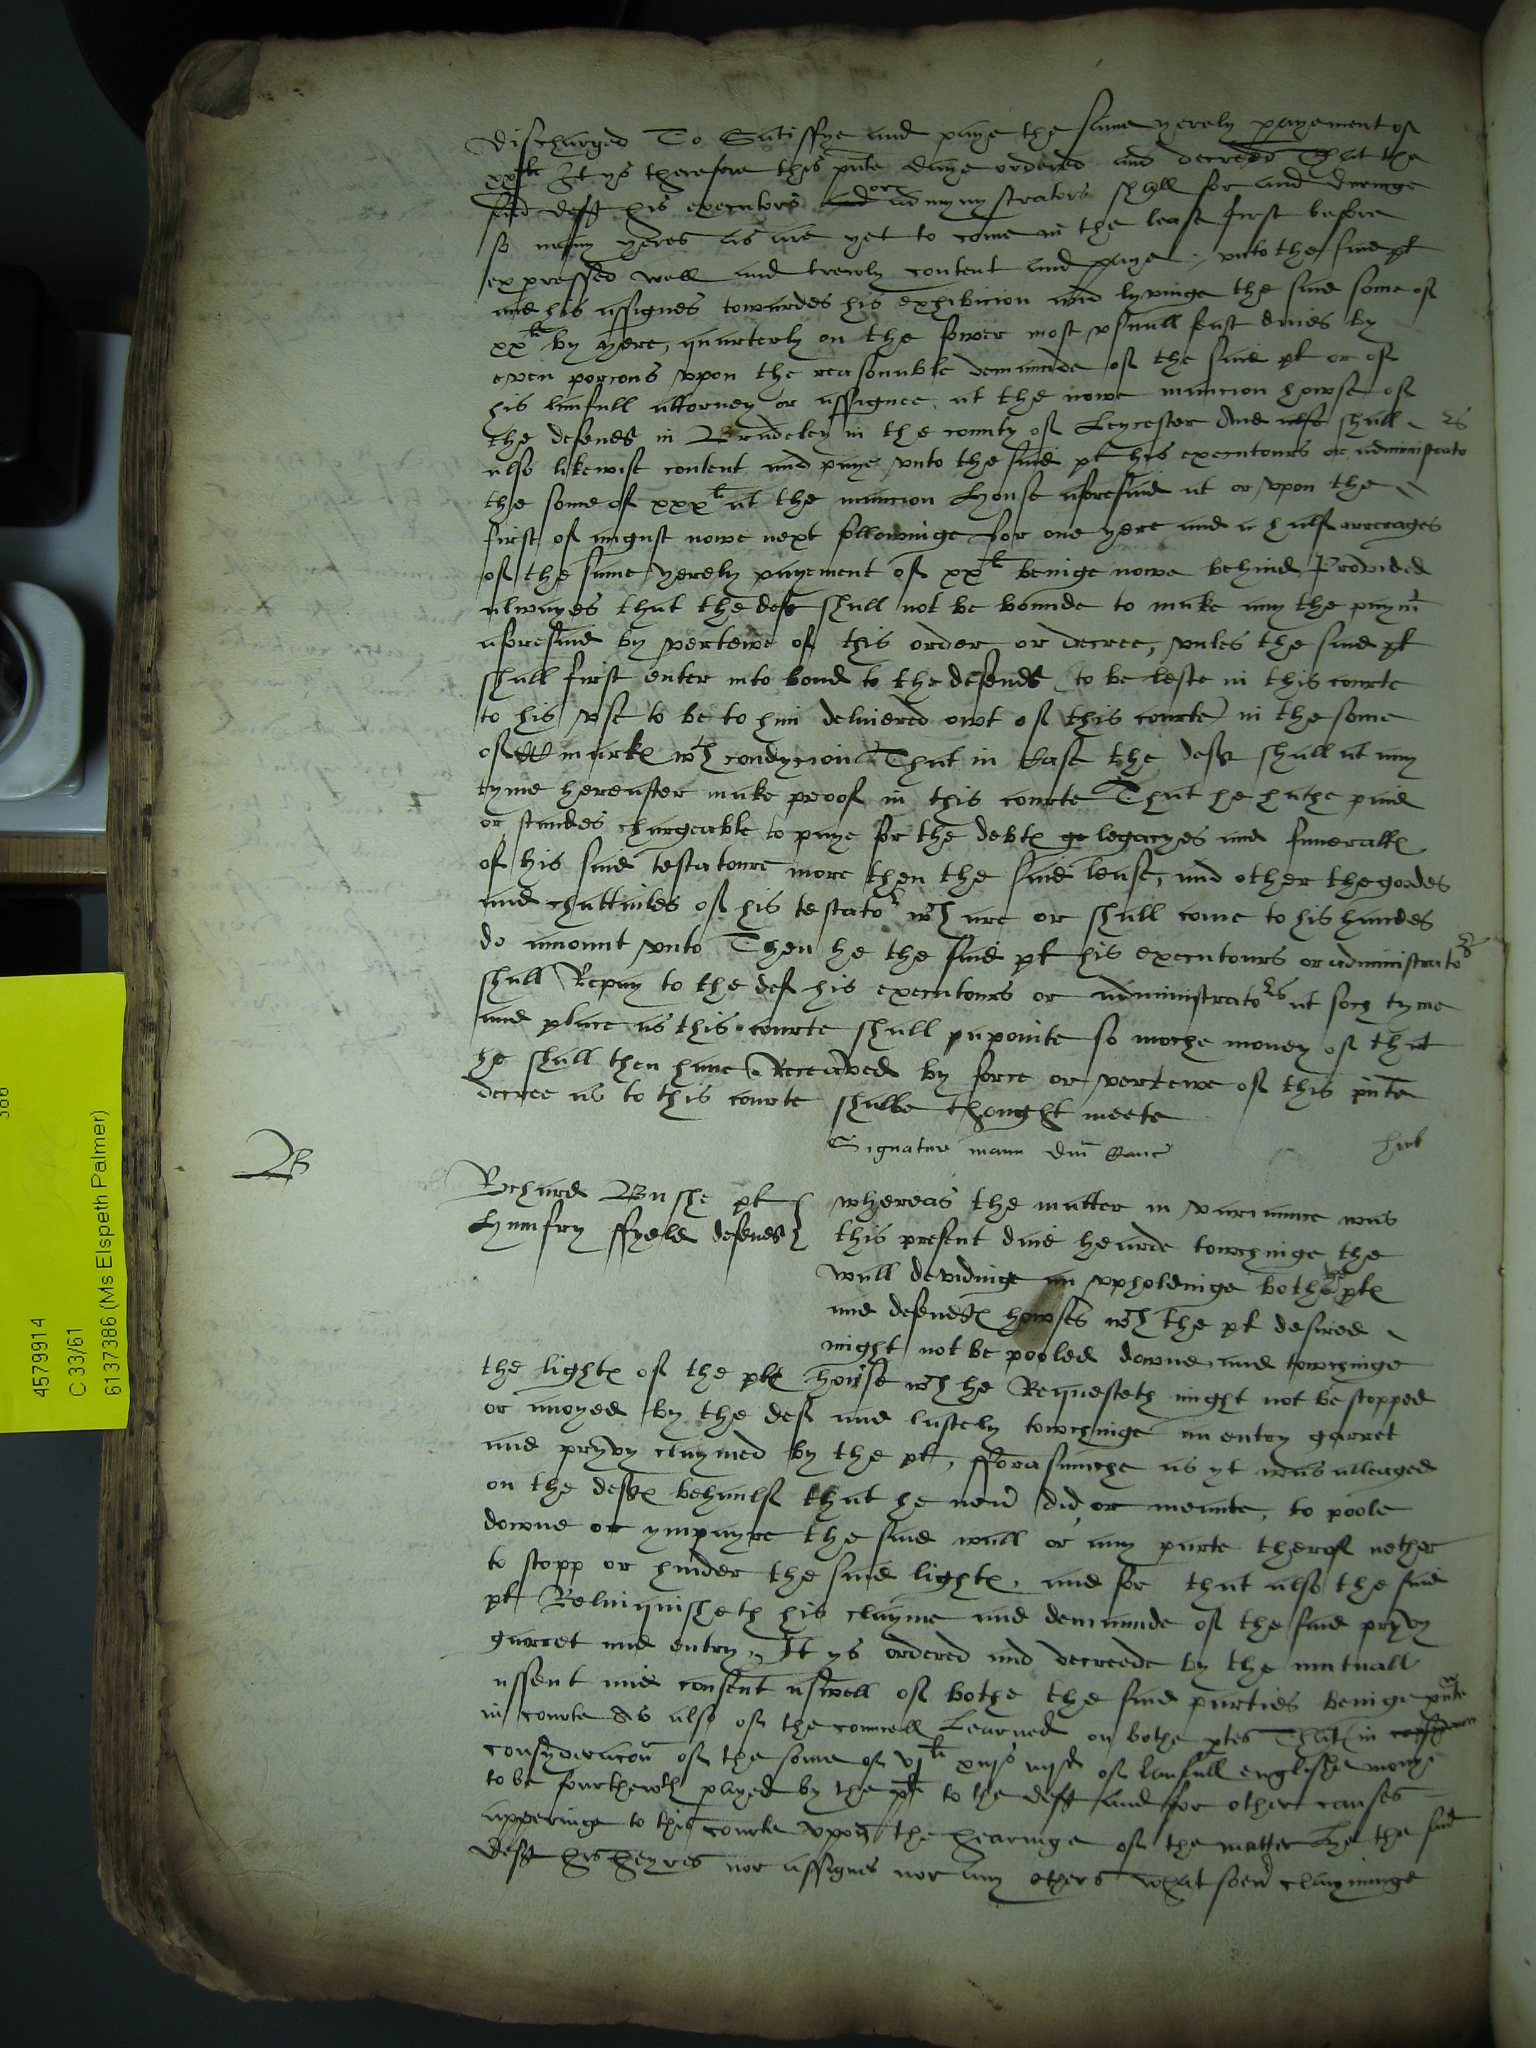 discharged To Satisffye and paye the same yerely payement of
xxli It ys therefore this pnte daye ordered and decreed That the
said deft his executors and or admynystrators shall for and duringe
so many yeres as are yet to come in the lease first before
expressed well and trewly content and paye unto the said pt
and his assignes towardes his exhibicion and lyvinge the said some of
xxli by yere, quarterly on the fower most usuall feast daies by
even porcons upon the reasonable demaunde of the said pt or of
his laufull attorney or assignee at the nowe mancion howse of
the defend in Bradeley in the county of Leycester And also shall
also likewise content and paye unto the said pt his executours or administrators
the some of xxxli at the mancion House aforesaid at or upon the
first of august nowe next followinge for one yere and a half arrerages
of the same yerely payement of xxli beinge nowe behind Provided
alwayes that the deft shall not be bounde to make any the paymt
aforesaid by vertewe of this order or decree, unles the said pt
shall first enter into bond to the defend (to be lefte in this courte
to his use to be to him delivered owt of this courte) in the some
of markes wch condycion That in case the deft shall at any
tyme hereafter make proof in this courte That he hathe paid
or standes chargeable to paye for the debtes legacyes and funeralles
of his said testatoure more then the said lease, and other the goodes
and chattailes of his testator wch are or shall come to his handes
do amount unto Then he the said pt his executours or administrators
shall Repay to the def his executours or administrators at soch tyme
and place as this courte shall appointe so moche money of that
he shall then have Receaved by force or vertewe of this pnte
decree as to this courte shalbe thought meete
Signatur manu dni Canc
Richard Bushe pt
Humfry ffyeld defend
whereas the matter in variaunce was
this present daie hearde towchinge the
wall devidinge an upholdinge bothe ptes
and defendtes howses wch the pt desired
might not be pooled downe, and towchinge
the lightes of the ptes howse wch he Requesteth might not be stopped
or anoyed by the def and lastely towchinge an entry garret
and pryvy claymed by the pt, fforasmuche as yt was alleaged
on the deftes behaulf that he nevr did or meante, to poole
downe or ympayre the said wall or any parte therof nether
to stopp or hinder the said lightes, and for that also the said
pt Relinquisheth his clayme and demaunde of the said pryvy
garret and entry, It ys ordered and decreede by the mutuall
assent and consent aswell of bothe the said parties beinge pnte
in courte As also of the councell Learned on bothe ptes That in
consyderacon of the some of vjli xiijs iiijd of laufull englishe mony
to be fourthewth payed by the pt to the deft and for other causes
apperinge to this courte upon the hearinge of the matter He the said
deft his heyres nor assignes nor any others whatsoevr clayminge
4579914
C 33/61
6137386 (Ms Elspeth Palmer)